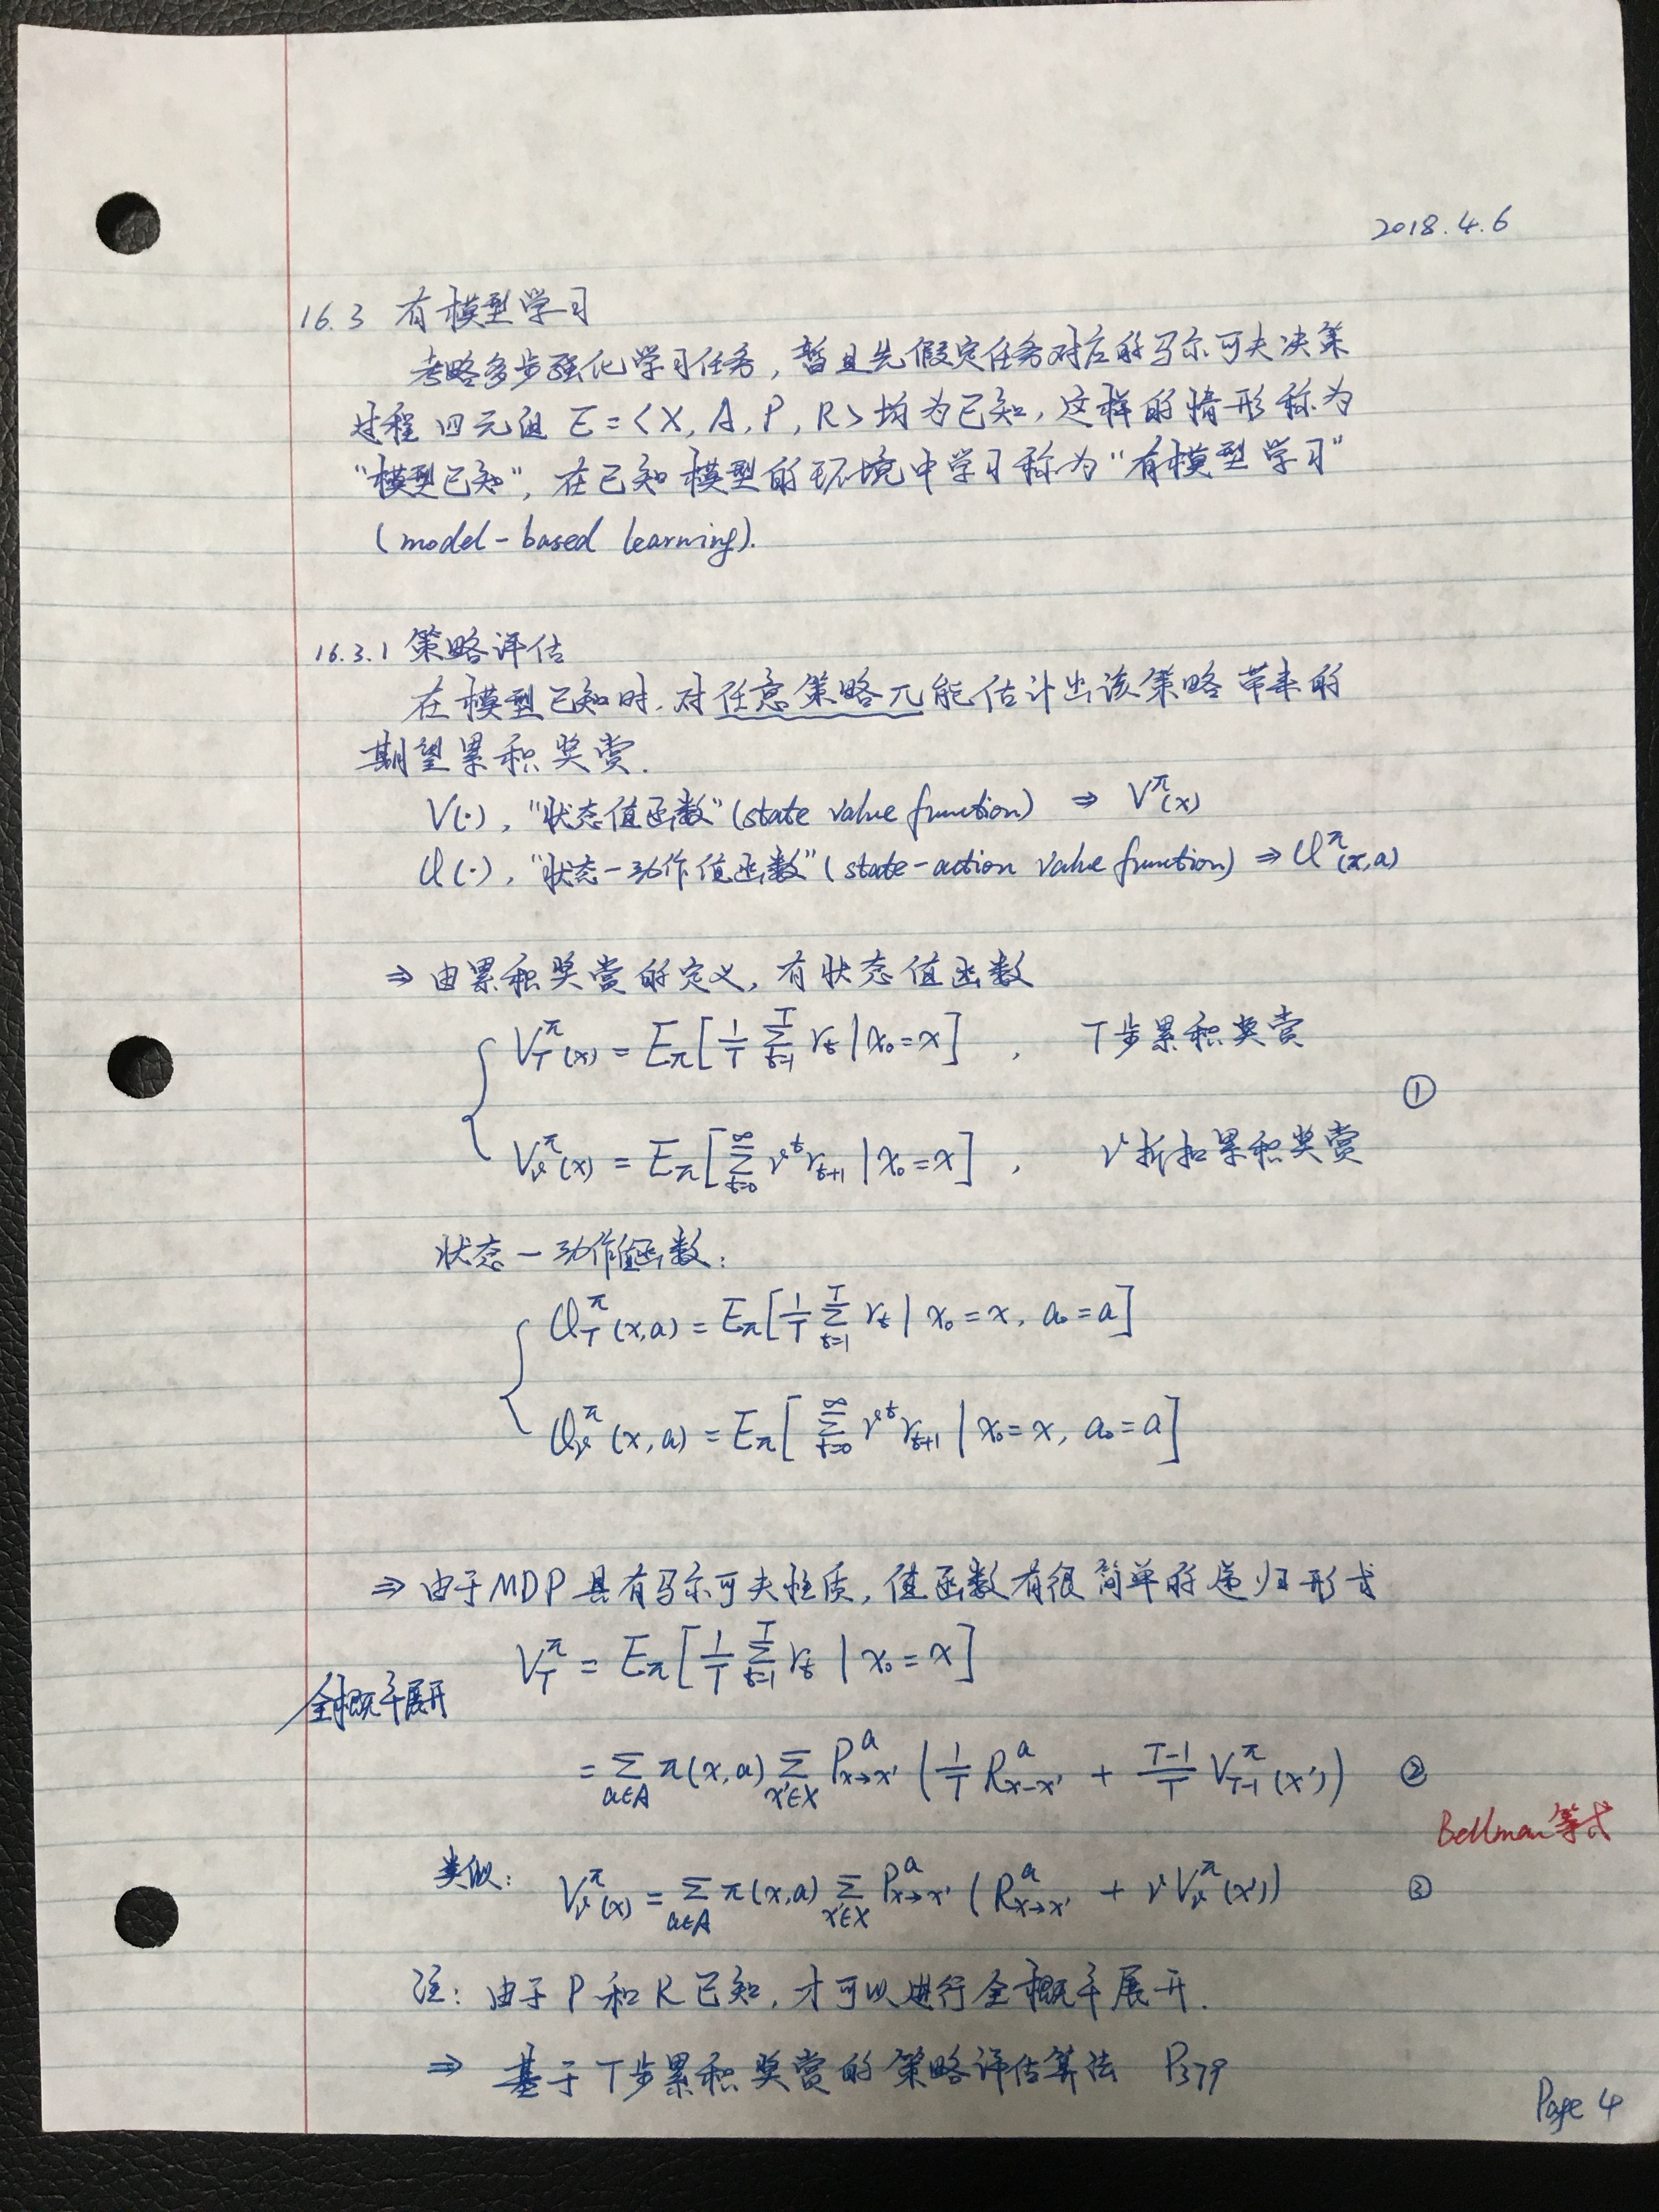 2018.4.6
16.3 有模型学习
考略多步强化学习任务，暂且先假定任务对应的马尔可夫决策
过程四元组 E=<X, A, P, R>均为已知，这样的情形称为
"模型已知"，在已知模型的环境中学习称为"有模型学习"
(model-based learning).
16.3.1 策略评估
在模型已知时，对任意策略π能估计出该策略带来的
期望累积奖赏.
V(·), "状态值函数"(state value function) ⇒ V^π(x)
Q(·), "状态-动作值函数"(state-action value function) ⇒ Q^π(x,a)
⇒ 由累积奖赏的定义，有状态值函数
V_T^π(x) = E_π[1/T ∑_{t=1}^T r_t | x_0=x] , T步累积奖赏
①
V_γ^π(x) = E_π[∑_{t=0}^∞ γ^t r_{t+1} | x_0=x] , γ折扣累积奖赏
状态-动作值函数:
Q_T^π(x,a) = E_π[1/T ∑_{t=1}^T r_t | x_0=x, a_0=a]
Q_γ^π(x,a) = E_π[∑_{t=0}^∞ γ^t r_{t+1} | x_0=x, a_0=a]
⇒ 由于MDP具有马尔可夫性质，值函数有很简单的递归形式
V_T^π = E_π[1/T ∑_{t=1}^T r_t | x_0=x]
全概率展开
= ∑_{a∈A} π(x,a) ∑_{x'∈X} P_{x→x'}^a (1/T R_{x-x'}^a + T-1/T V_{T-1}^π(x')) ②
Bellman等式
类似: V_γ^π(x) = ∑_{a∈A} π(x,a) ∑_{x'∈X} P_{x→x'}^a (R_{x→x'}^a + γV_γ^π(x')) ③
注: 由于P和R已知，才可以进行全概率展开.
⇒ 基于T步累积奖赏的策略评估算法 P379
Page 4